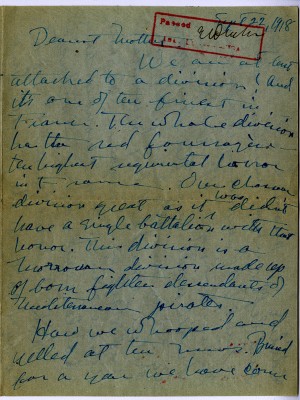 Sept 22, 1918
Passed
Dearest Mother
We are at last
attached to a division! And
its one of ten finest in
France. The whole division
has the red fourragere
ten highest regimental honor
in France. Our
division great as it was didn't
have a single battalion with that
honor. This division is a
Moroccan division made up
of born fighters descendants of
Mediterranean pirates.
How we whooped and
yelled at ten news.
for a year we have been